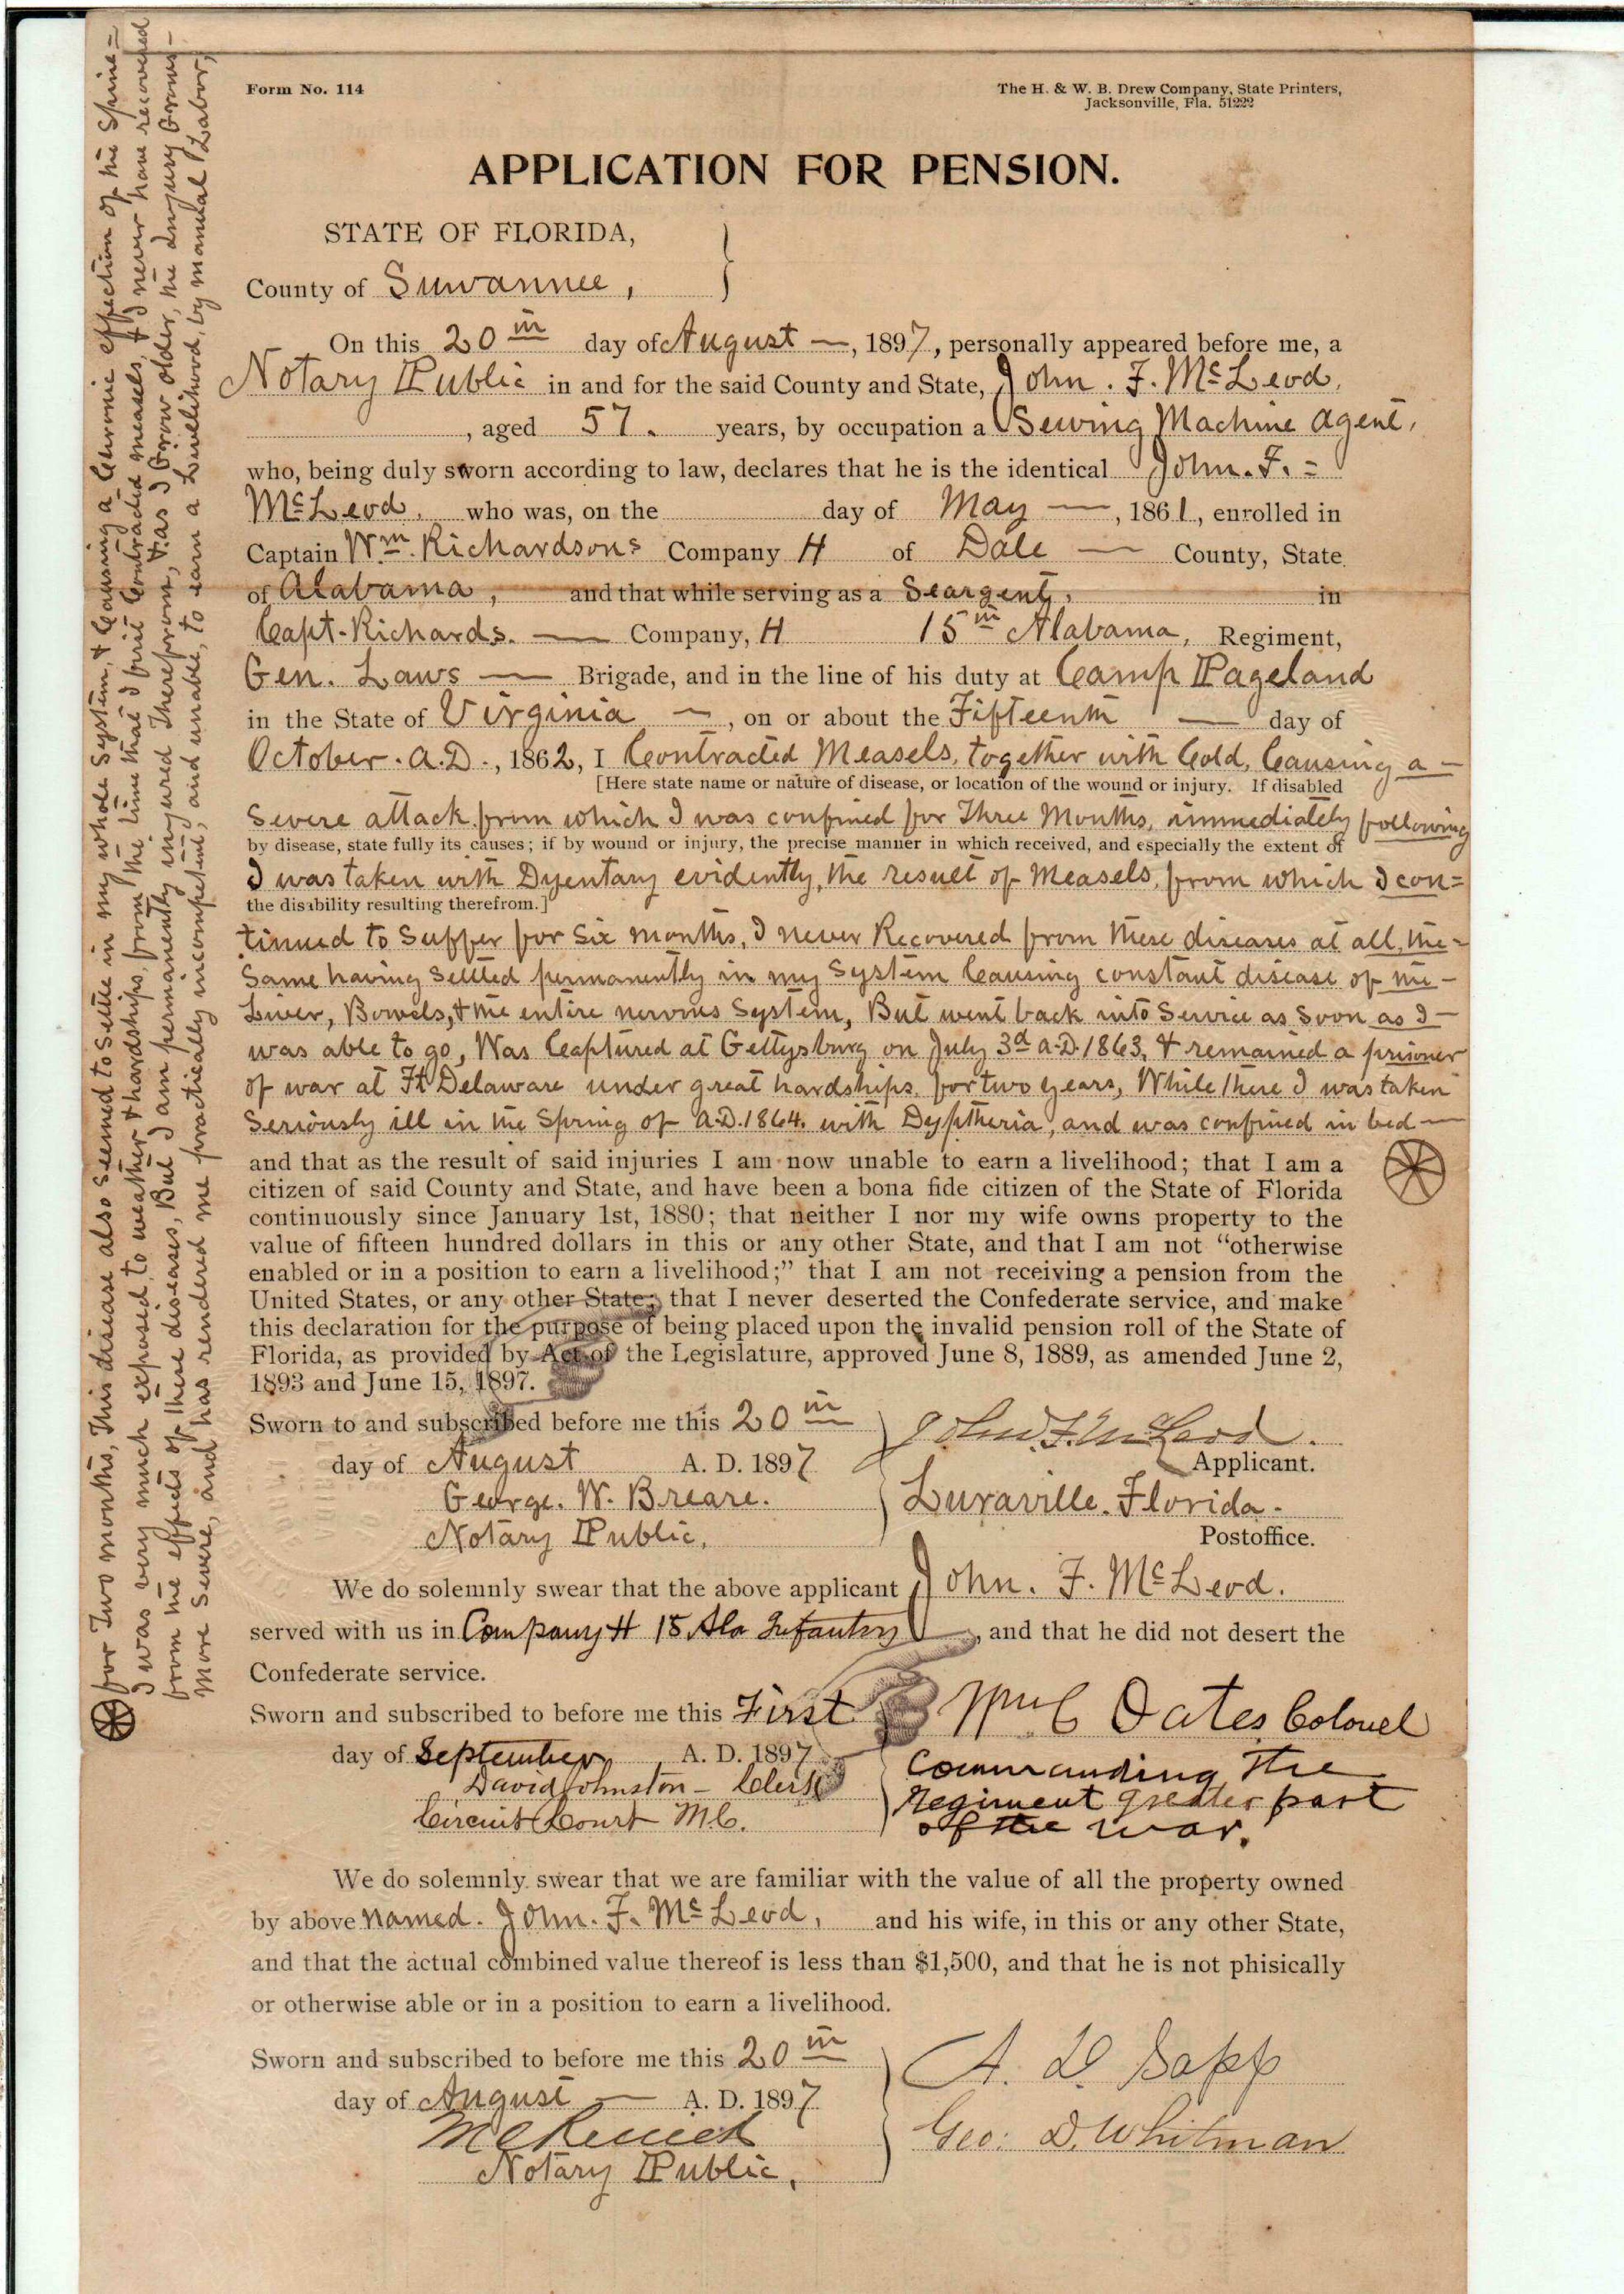 Form No. 114
The H. & W. B. Drew Company, State Printers,
Jacksonville, Fla. 51222
APPLICATION FOR PENSION.
STATE OF FLORIDA,
County of Suwannee,
On this 20th day of August —, 1897, personally appeared before me, a
Notary Public in and for the said County and State, John. F. McLeod.
, aged 57. years, by occupation a Sewing Machine Agent,
who, being duly sworn according to law, declares that he is the identical John. F. =
McLeod. who was, on the day of May —, 1861, enrolled in
Captain Wm. Richardsons Company H of Dale — County, State
of Alabama, and that while serving as a Seargent, in
Capt. Richards. — Company, H 15th Alabama, Regiment,
Gen. Laws — Brigade, and in the line of his duty at Camp Pageland
in the State of Virginia —, on or about the Fifteenth — day of
October. A.D., 1862, I Contracted Measels, together with Cold, Causing a —
[Here state name or nature of disease, or location of the wound or injury. If disabled
Severe attack from which I was confined for Three Months, immediately following
by disease, state fully its causes; if by wound or injury, the precise manner in which received, and especially the extent of
I was taken with Dyentary evidently, the result of Measels, from which I con=
the disability resulting therefrom.]
tinued to suffer for six months, I never Recovered from these diseases at all, the =
Same having settled permanently in my System Causing constant disease of the —
Liver, Bowels, & the entire nervous System, But went back into Service as Soon as I —
was able to go, Was Captured at Gettysburg on July 3d A.D. 1863, & remained a prisoner
of war at Ft Delaware under great hardships, for two years, While there I was taken
Seriously ill in the Spring of A.D. 1864. with Dyptheria, and was confined in bed —
and that as the result of said injuries I am now unable to earn a livelihood; that I am a
citizen of said County and State, and have been a bona fide citizen of the State of Florida
continuously since January 1st, 1880; that neither I nor my wife owns property to the
value of fifteen hundred dollars in this or any other State, and that I am not "otherwise
enabled or in a position to earn a livelihood;" that I am not receiving a pension from the
United States, or any other State; that I never deserted the Confederate service, and make
this declaration for the purpose of being placed upon the invalid pension roll of the State of
Florida, as provided by Act of the Legislature, approved June 8, 1889, as amended June 2,
1893 and June 15, 1897.
Sworn to and subscribed before me this 20th
day of August A. D. 1897
George. W. Breare.
Notary Public,
John F. McLeod.
Applicant.
Luraville. Florida.
Postoffice.
We do solemnly swear that the above applicant John. F. McLeod.
served with us in Company H 15 Ala Infantry —, and that he did not desert the
Confederate service.
Sworn and subscribed to before me this First
day of September A. D. 1897
David Johnston – Clerk
Circuit Court M.C.
Wm C Oates Colonel
Commanding the
Regiment greater part
of the war.
We do solemnly swear that we are familiar with the value of all the property owned
by above named. John. F. McLeod, and his wife, in this or any other State,
and that the actual combined value thereof is less than $1,500, and that he is not phisically
or otherwise able or in a position to earn a livelihood.
Sworn and subscribed to before me this 20th
day of August — A. D. 1897
Notary Public,
A. D. Sapp
Geo: D. Whitman
for Two months, This disease also seemed to settle in my whole System, & Causing a Chronic effection of the Spine =
I was very much exposed, to weather & hardships, from the time that I first Contracted measels, & I never have recovered
from the effects of these diseases, But I am permanently injured therefrom, & as I Grow older, the Injury Grows —
more Severe, and has rendered me practically incompetent, and unable, to earn a Livelihood, by manual Labor,